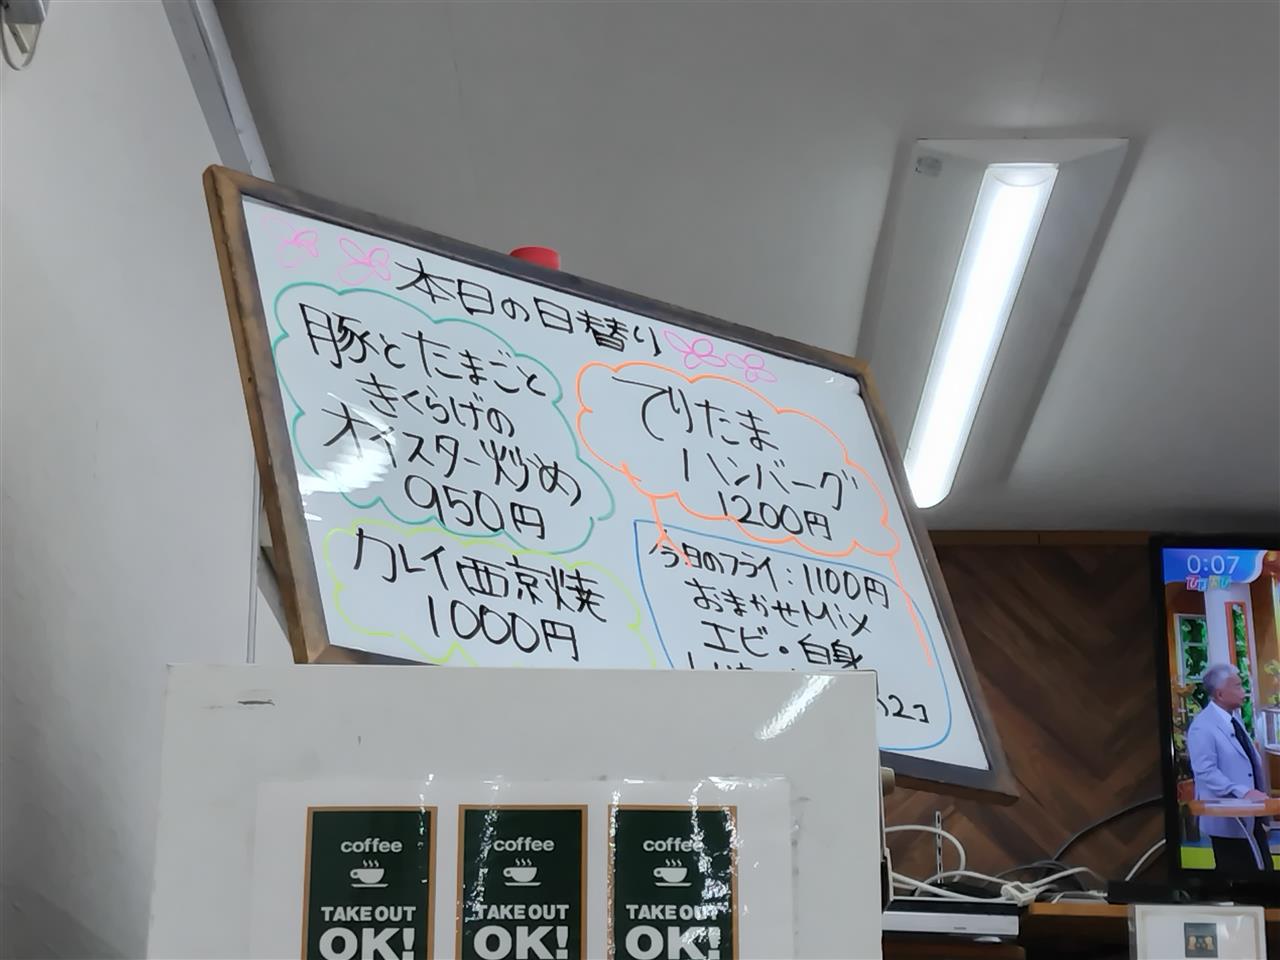 本日の日替り
豚とたまごと
きくらげの
オイスター炒め
950円
てりたま
ハンバーグ
1200円
カレイ西京焼
1000円
今日のフライ:1100円
おまかせMix
エビ・白身
2コ
0:07
coffee
TAKE OUT
OK!
coffee
TAKE OUT
OK!
coffee
TAKE OUT
OK!